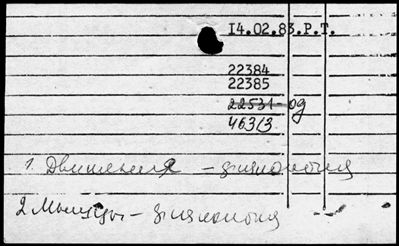 14.02.83.Р.Т.
22384
22385
22531-од
463/3
1 Движения - физиология
2 Мышцы - физиология